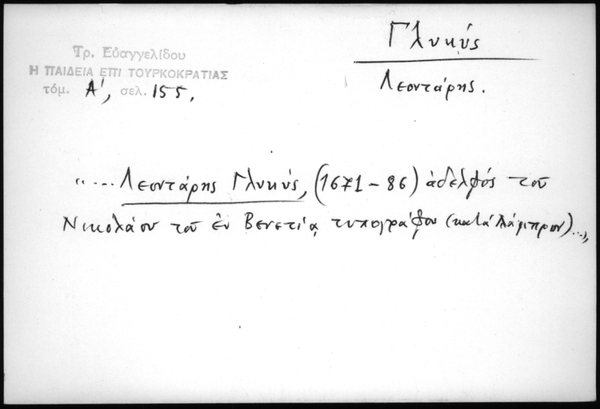 Γλυκύς
Λεοντάρης.
Τρ. Εὐαγγελίδου
Η ΠΑΙΔΕΙΑ ΕΠΙ ΤΟΥΡΚΟΚΡΑΤΙΑΣ
τόμ. Α', σελ. 155.
"... Λεοντάρης Γλυκύς, (1671-86) ἀδελφός τοῦ
Νικολάου τοῦ ἐν Βενετίᾳ τυπογράφου (κατά Λάμπρον)...,,